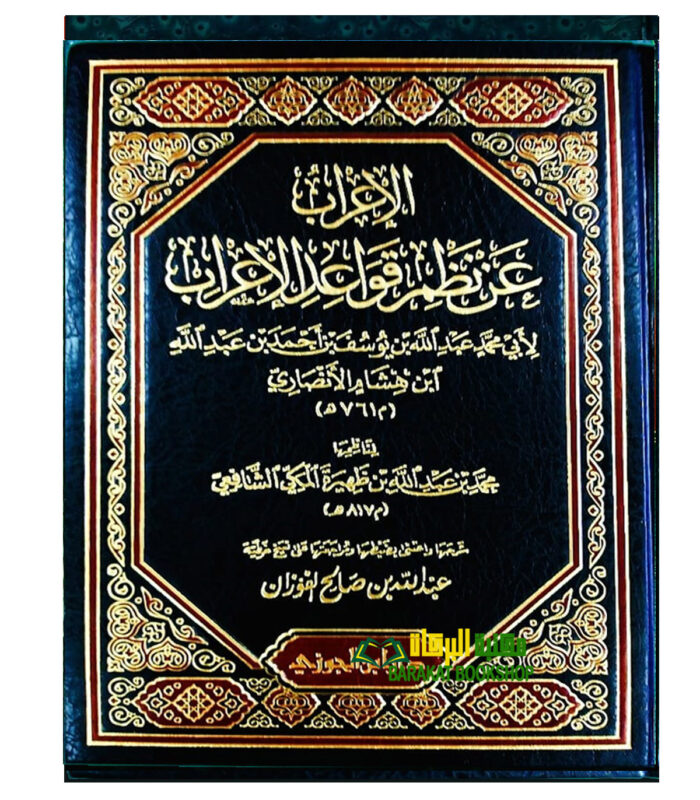 الإعراب
عَن نَظم قَوَاعِد الإِعْرَاب
لِأَبي محمَّد عَبد اللَّه بن يُوسُف بن أَحمَد بن عَبد اللَّه
ابن هِشَام الأَنصَاري
(م ٧٦١ هـ)
لناظمها
محمَّد بن عَبد اللَّه بن ظَهيرَة المَكّي الشَّافِعي
(م ٨١٧ هـ)
شرحها واعتنى بضبطها ومراجعتها على نسخ خطية
عبد اللّٰه بن صالح الفوزان
ابن الجوزي
مكتبة البركة
BARAKAT BOOKSHOP